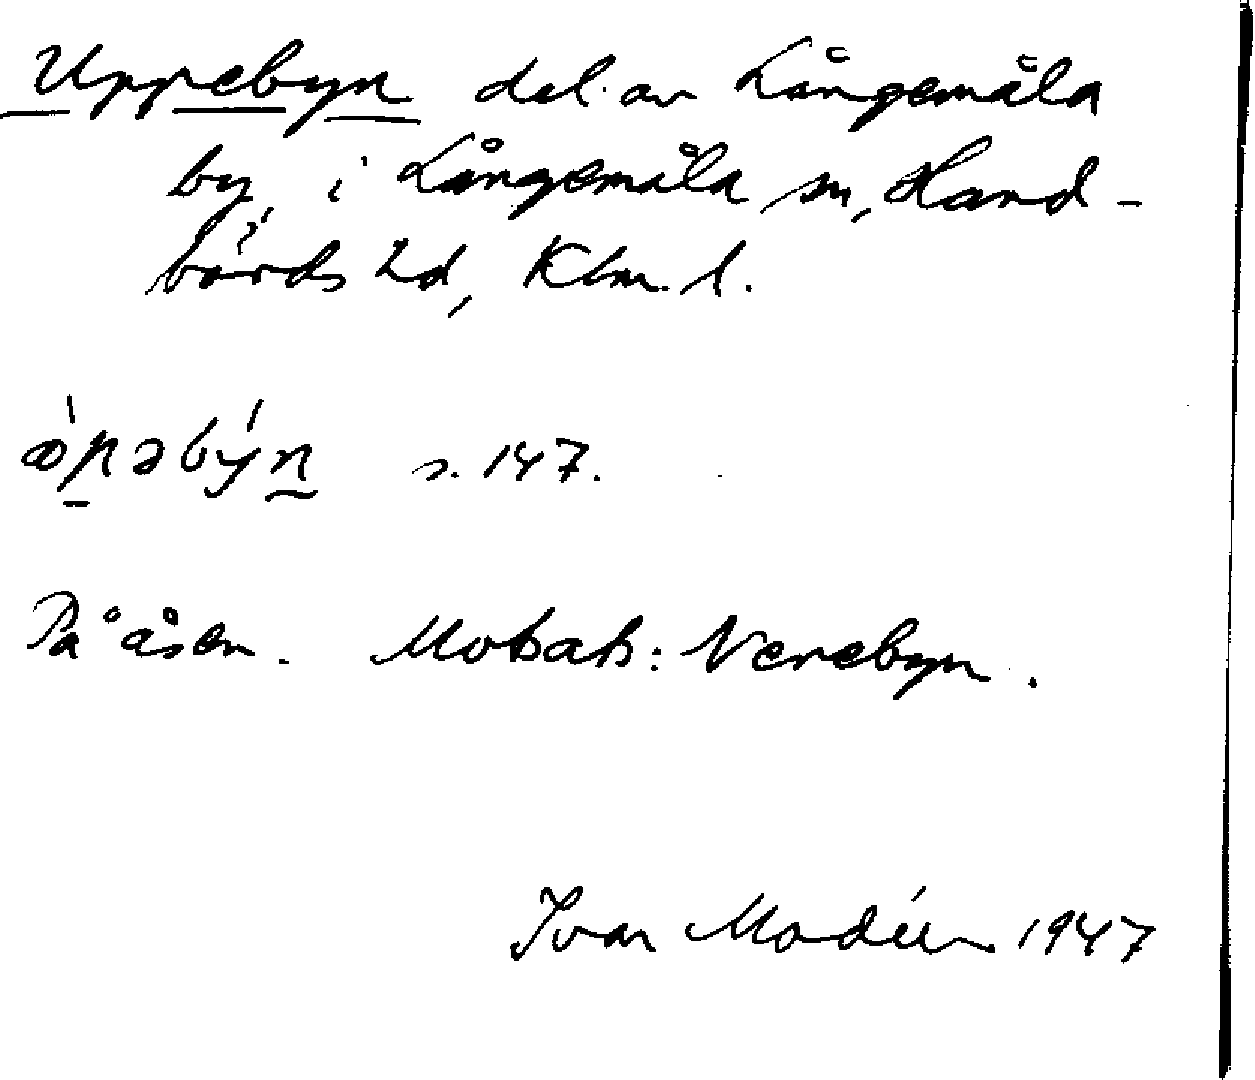 Uppebyn del av Långemåla
by, i Långemåla sn, Hand-
börds hd, Klm. l.
s. 147.
På åsen. Motsats: Nerebyn.
Ivar Modéer 1947